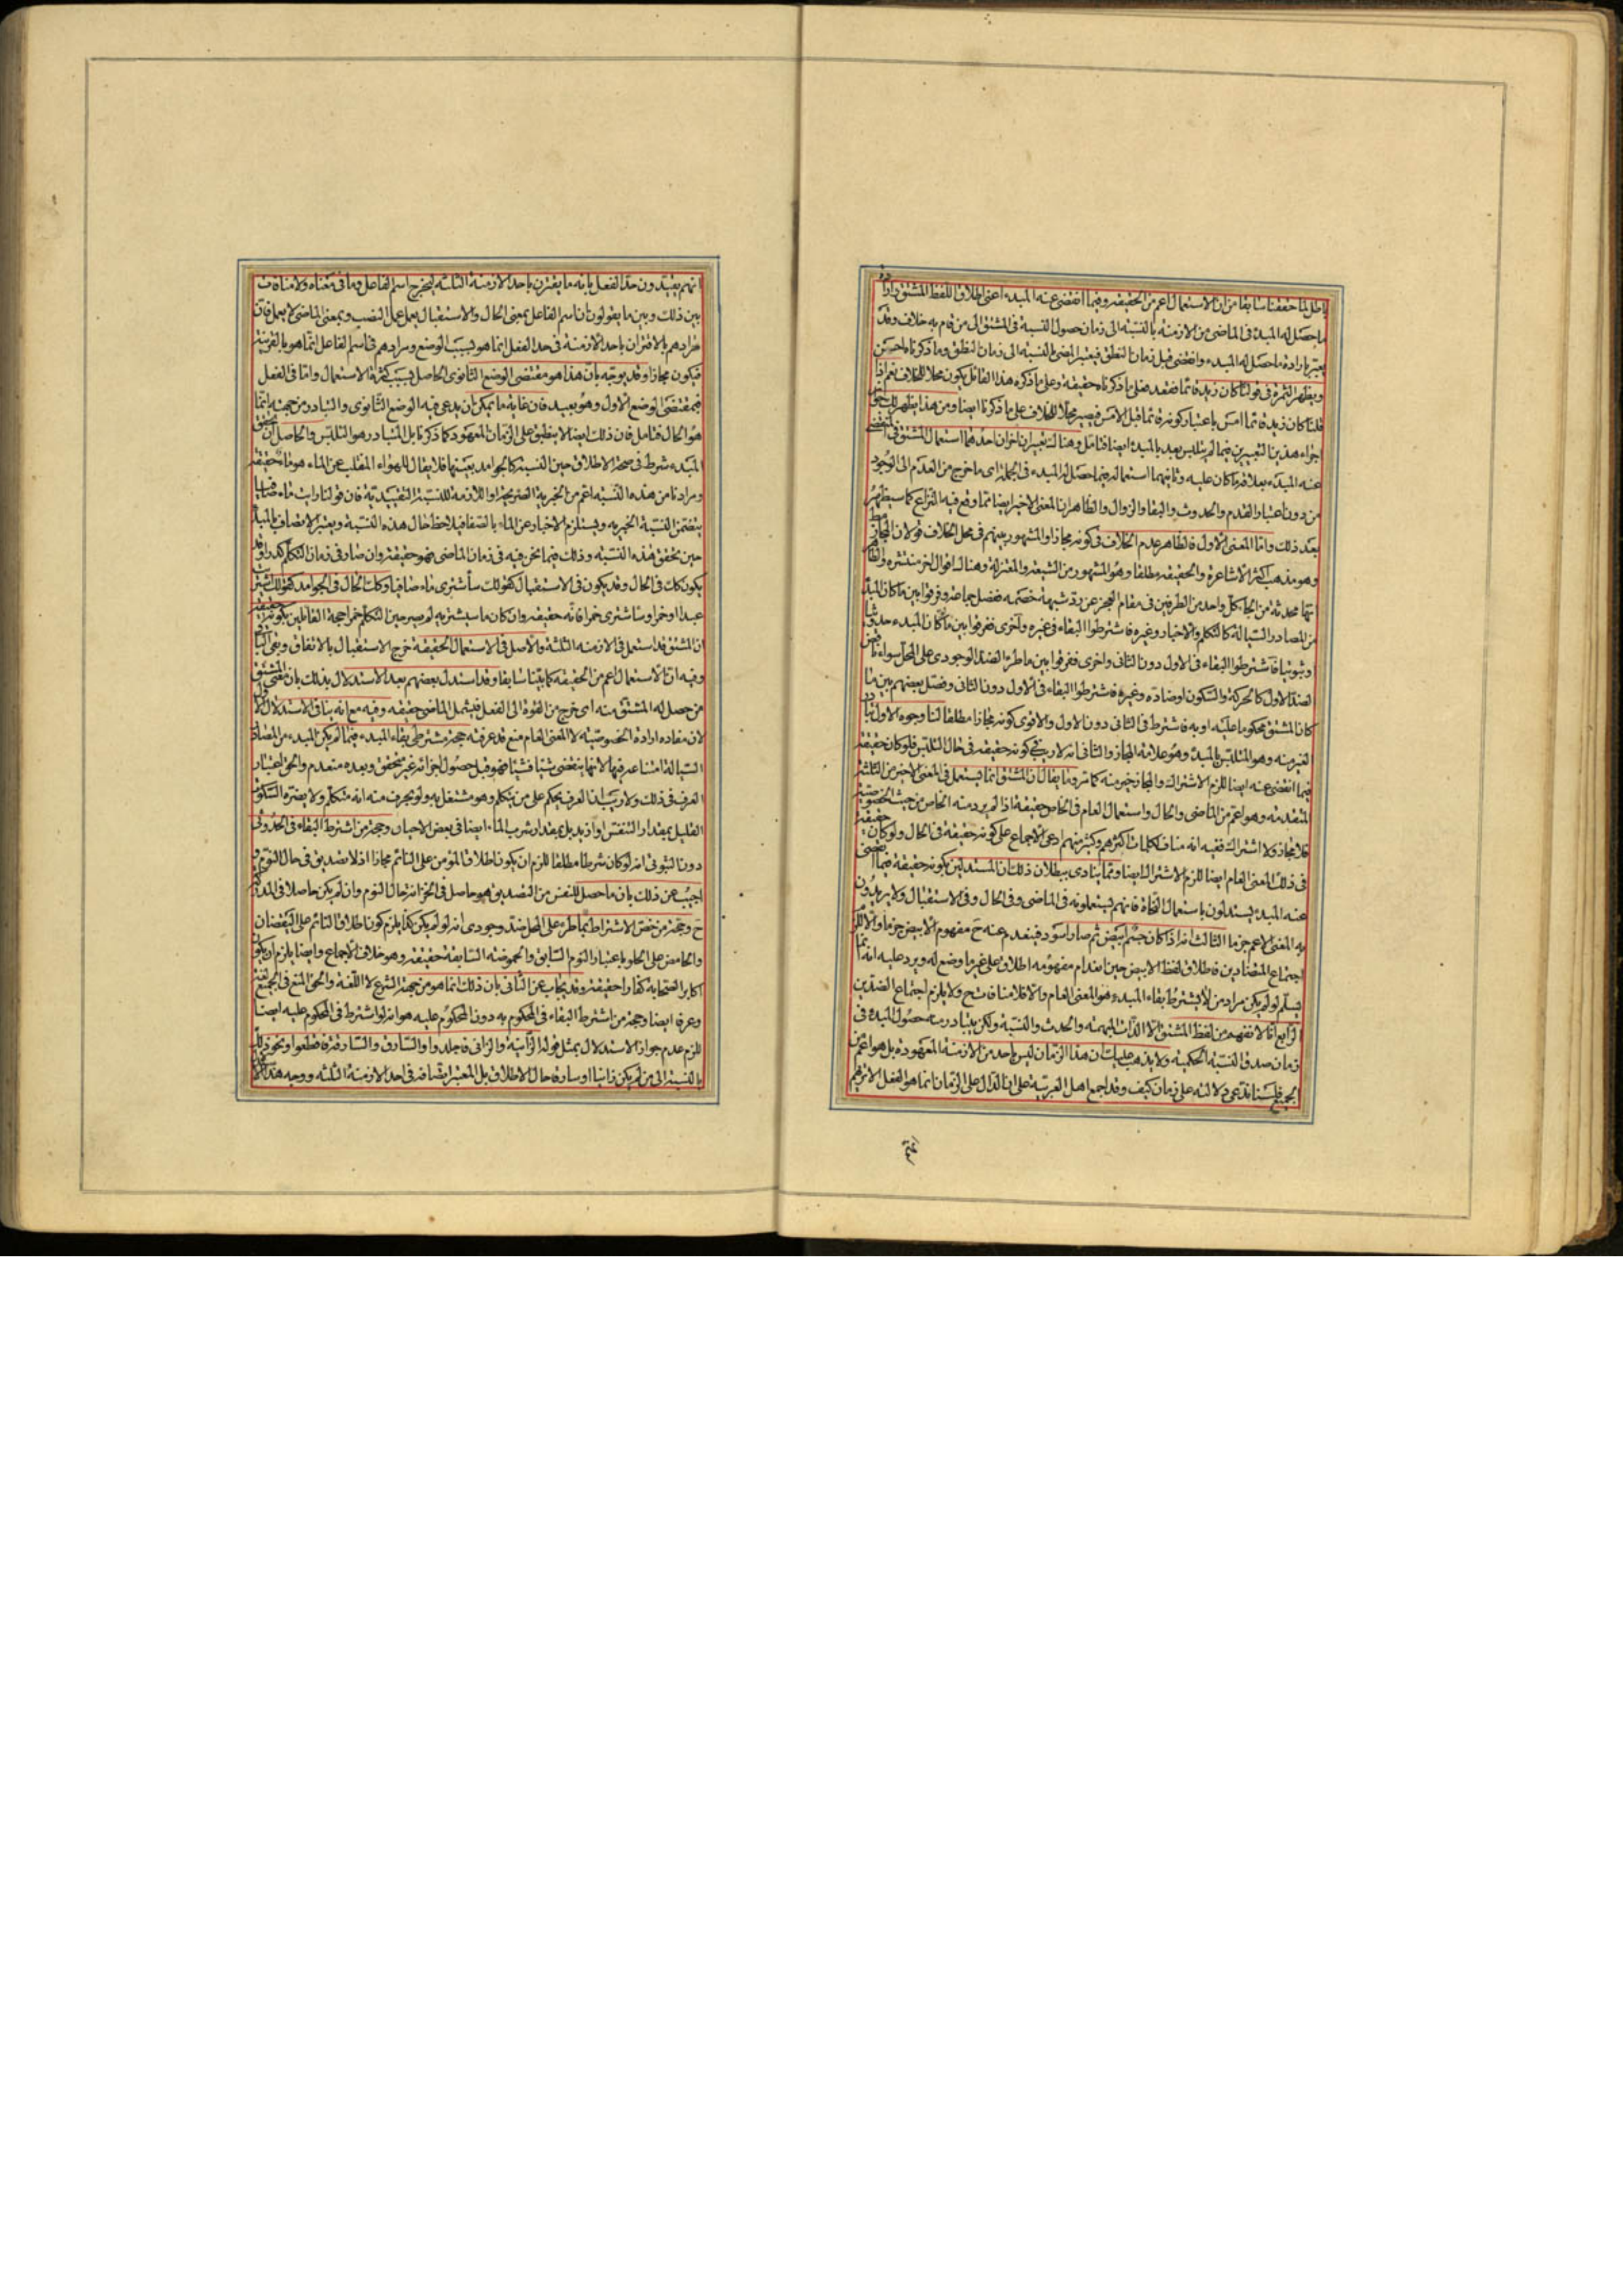 باطل لما حققنا سابقا من ان الاستعمال اعم من الحقيقة وفيما انقضى عنه المبدء اعنى اطلاق اللفظ المشتق وارادة
ما حصل له المبدء فى الماضى من الازمنة بالنسبة الى زمان حصول النسبة فى المشتق الى من قام به خلاف وقد
يعتبر بارادة ما حصل له المبدء وانقضى قبل زمان النطق فيعتبر المضى بالنسبة الى زمان النطق وما ذكرناه احسن
ويظهر الثمرة فى قولنا كان زيد قائما فقعد فعلى ما ذكرناه حقيقة وعلى ما ذكره هذا القائل يكون محلا للخلاف نعم اذا
قلنا كان زيد قائما امس باعتبار كونه قائما قبل الامس فيصير محلا للخلاف على ما ذكرنا ايضا ومن هذا يظهر لك
اجراء هذين التعبيرين فيما لم يتلبس بعد بالمبدء ايضا فتامل وهنا تعبيران اخران احدهما استعمال المشتق فى
عنه المبدء بعلاقة ما كان عليه وثانيهما استعماله فيما حصل له المبدء فى الجملة اى ما خرج من العدم الى الوجود
من دون اعتبار القدم والحدوث والبقاء والزوال والظاهر ان المعنى الاخير ايضا مما وقع فيه النزاع كما سيظهر
بعد ذلك واما المعنى الاول فالظاهر عدم الخلاف فى كونه مجازا والمشهور بينهم فى محل الخلاف قولان المجاز
وهو مذهب اكثر الاشاعرة والحقيقة مطلقا وهو المشهور من الشيعة والمعتزلة وهناك اقوال اخر منتشرة والظاهر
انها محدثة من الجاء كل واحد من الطرفين فى مقام العجز عن رد شبهة خصمه ففصل جماعة وفرقوا بين ما كان المبدء
من المصادر السيالة كالتكلم والاخبار وغيره فاشترطوا البقاء فى غيره واخرى ففرقوا بين ما كان المبدء حدوثيا
او ثبوتيا فاشترطوا البقاء فى الاول دون الثانى واخرى ففرقوا بين ما طرء الضد الوجودى على المحل سواء ناقض
الضد الاول كالحركة والسكون او ضاده وغيره فاشترطوا البقاء فى الاول دون الثانى وفصل بعضهم بين ما
كان المشتق محكوما عليه او به فاشترط فى الثانى دون الاول والاقوى كونه مجازا مطلقا لنا وجوه الاول تبادر
الغير منه وهو المتلبس بالمبدء وهو علامة المجاز والثانى انه لا ريب فى كونه حقيقة فى حال التلبس فلو كان حقيقة
فيما انقضى عنه ايضا للزم الاشتراك والمجاز خير منه كما مر وما يقال ان المشتق انما يستعمل فى المعنى الاخير من الثلثة
المتقدمة وهو اعم من الماضى والحال واستعمال العام فى الخاص حقيقة اذا لم يرد منه الخاص من حيث الخصوصية
فلا مجاز ولا اشتراك ففيه انه مناف لكلمات اكثرهم وكثير منهم ادعى الاجماع على كونه حقيقة فى الحال ولو كان حقيقة
فى ذلك المعنى العام ايضا للزم الاشتراك ايضا ومما ينادى ببطلان ذلك ان المستدلين بكونه حقيقة فيما انقضى
عنه المبدء يستدلون باستعمال النحاة فانهم يستعملونه فى الماضى وفى الحال وفى الاستقبال ولا يريدون
به المعنى الاعم جزما الثالث انه اذا كان جسم ابيض ثم صار اسود فينعدم عنه ح مفهوم الابيض جزما والا للزم
اجتماع المتضادين فاطلاق لفظ الابيض حين انعدام مفهومه اطلاق على غير ما وضع له ويرد عليه انه انما
يسلم لو لم يكن مراد من لا يشترط بقاء المبدء هو المعنى العام والا فلا منافاة ح ولا يلزم اجتماع الضدين
الرابع انا لا نفهم من لفظ المشتق الا الذات المبهمة والحدث والنسبة ولكن يتبادر منه حصول المبدء فى
زمان صدق النسبة الحكمية ولا يذهب عليك ان هذا الزمان ليس باحد من الازمنة المعهودة بل هو اعم من
الجميع فلسنا ندعى دلالته على زمان كيف وقد اجمع اهل العربية على ان الدال على الزمان انما هو الفعل الا ترى
انهم يقيدون حد الفعل بانه ما يقترن باحد الازمنة الثلثة ليخرج اسم الفاعل وما فى معناه ولا منافاة
بين ذلك وبين ما يقولون ان اسم الفاعل بمعنى الحال والاستقبال يعمل عمل النصب وبمعنى الماضى لا يعمل فان
مرادهم بالاقتران باحد الازمنة فى حد الفعل انما هو بسبب الوضع ومرادهم فى اسم الفاعل انما هو بالقرينة
فيكون مجازا وقد يوجه بان هذا هو مقتضى الوضع الثانوى الحاصل بسبب كثرة الاستعمال واما فى الفعل
فبمقتضى الوضع الاول وهو بعيد فان غاية ما يمكن ان يدعى فيه الوضع الثانوى والتبادر من جهته انما
هو الحال فتامل فان ذلك ايضا لا ينطبق على الزمان المعهود كما ذكرنا بل المتبادر هو التلبس والحاصل ان تحقق
المبدء شرط فى صحة الاطلاق حين النسبة كالجوامد بعينها فلا يقال للهواء المنقلب عن الماء هو ماء حقيقة
ومرادنا من هذه النسبة اعم من الخبرية الصريحة او اللازمة للنسبة التقييدية فان قولنا رايت ماء صافيا
يتضمن النسبة الخبرية ويستلزم الاخبار عن الماء بالصفا فيلاحظ حال هذه النسبة ويعتبر الاتصاف بالمبدء
حين تحقق هذه النسبة وذلك فيما نحن فيه فى زمان الماضى فهو حقيقة وان صار فى زمان التكلم كدرا وقد
يكون كك فى الحال وقد يكون فى الاستقبال كقولك سأشترى ماء صافيا وكك الحال فى الجوامد كقولك
عبدا او خمرا وسأشترى خمرا فانه حقيقة وان كان ما سيشتريه لم يصر حين التكلم خمرا حجة القائلين بكونه حقيقة
ان المشتق قد استعمل فى الازمنة الثلثة والاصل فى الاستعمال الحقيقة خرج الاستقبال بالاتفاق وبقى الباقى
وفيه ان الاستعمال اعم من الحقيقة كما بينا سابقا وقد استدل بعضهم بعد الاستدلال بذلك بان معنى المشتق
من حصل له المشتق منه اى خرج من القوة الى الفعل فيشمل الماضى حقيقة وفيه مع انه ينافى الاستدلال الاول
لان مفاده ارادة الخصوصية لا المعنى العام منع قد عرفته حجة مشترطى بقاء المبدء فيما لم يكن المبدء من المصادر
السيالة امتناعه فيها لانها ينقضى شيئا فشيئا فهو قبل حصول اجزائه غير متحقق وبعده منعدم والحق اعتبار
العرف فى ذلك ولا ريب ان العرف يحكم على من يتكلم وهو مشتغل به ولو بحرف منه انه متكلم ولا يضره السكوت
القليل بمقدار التنفس او ازيد بل بمقدار شرب الماء ايضا فى بعض الاحيان وحجة من اشترط البقاء فى الحدوثى
دون الثبوتى انه لو كان شرطا مطلقا للزم ان يكون اطلاق المؤمن على النائم مجازا اذ لا تصديق فى حال النوم و
اجيب عن ذلك بان ما حصل للنفس من التصديق هو حاصل فى الخزانة حال النوم وان لم يكن حاصلا فى المدركة
ح وحجة من خص الاشتراط بما طرء على المحل ضد وجودى انه لو لم يكن كذا يلزم كون اطلاق النائم على اليقضان
والحامض على الحلو باعتبار النوم السابق والحموضة السابقة حقيقة وهو خلاف الاجماع وايضا يلزم ان يكون
اكابر الصحابة كفارا حقيقة وقد يجاب عن الثانى بان ذلك انما هو من جهة الشرع لا اللغة والحق المنع فى الجميع لغة
وعرفا ايضا وحجة من اشترط البقاء فى المحكوم به دون المحكوم عليه هو انه لو اشترط فى المحكوم عليه ايضا
للزم عدم جواز الاستدلال بمثل قوله الزانية والزانى فاجلدوا والسارق والسارقة فاقطعوا ونحوهما
بالنسبة الى من لم يكن زانيا او سارقا حال الاطلاق بل المعتبر اتصافه فى احد الازمنة الثلثة ووجه هذا